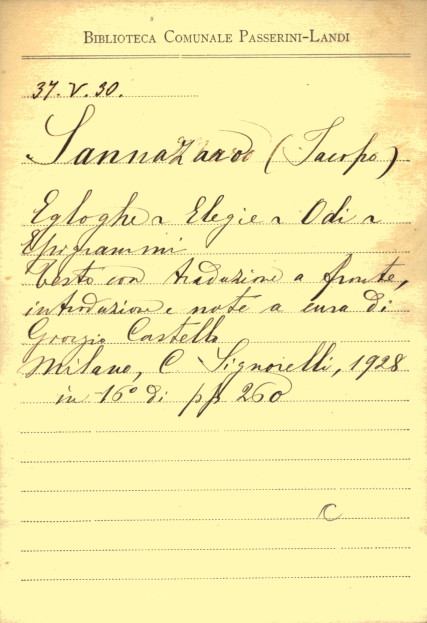 BIBLIOTECA COMUNALE PASSERINI-LANDI
37. V. 30.
Sannazaro (Jacopo)
Egloghe Elegie Odi
Epigrammi
testo con traduzione a fronte,
introduzione e note a cura di
Giorgio Castello
Milano, C Signorelli, 1928
in 16° di pp 260
C